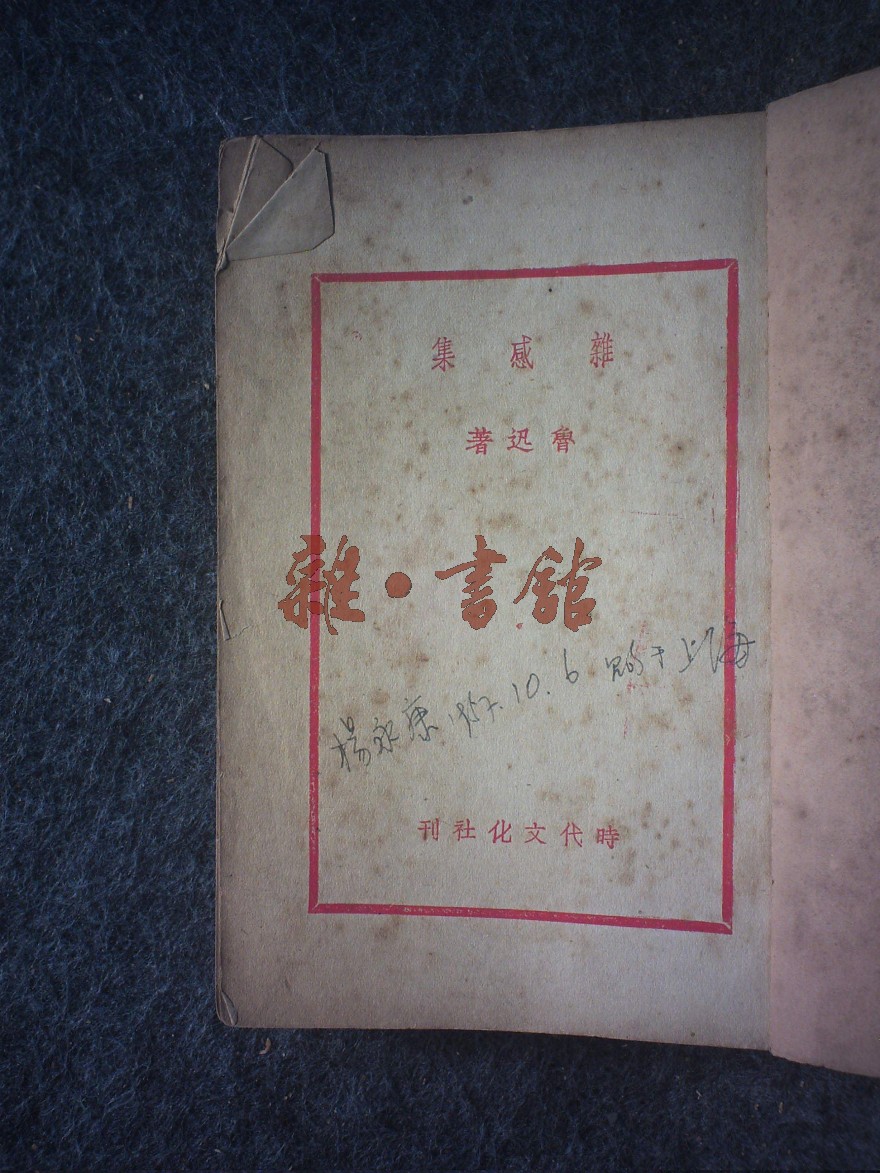 雜感集
魯迅著
雜·書館
楊永康 1957.10.6 购于上海
時代文化社刊